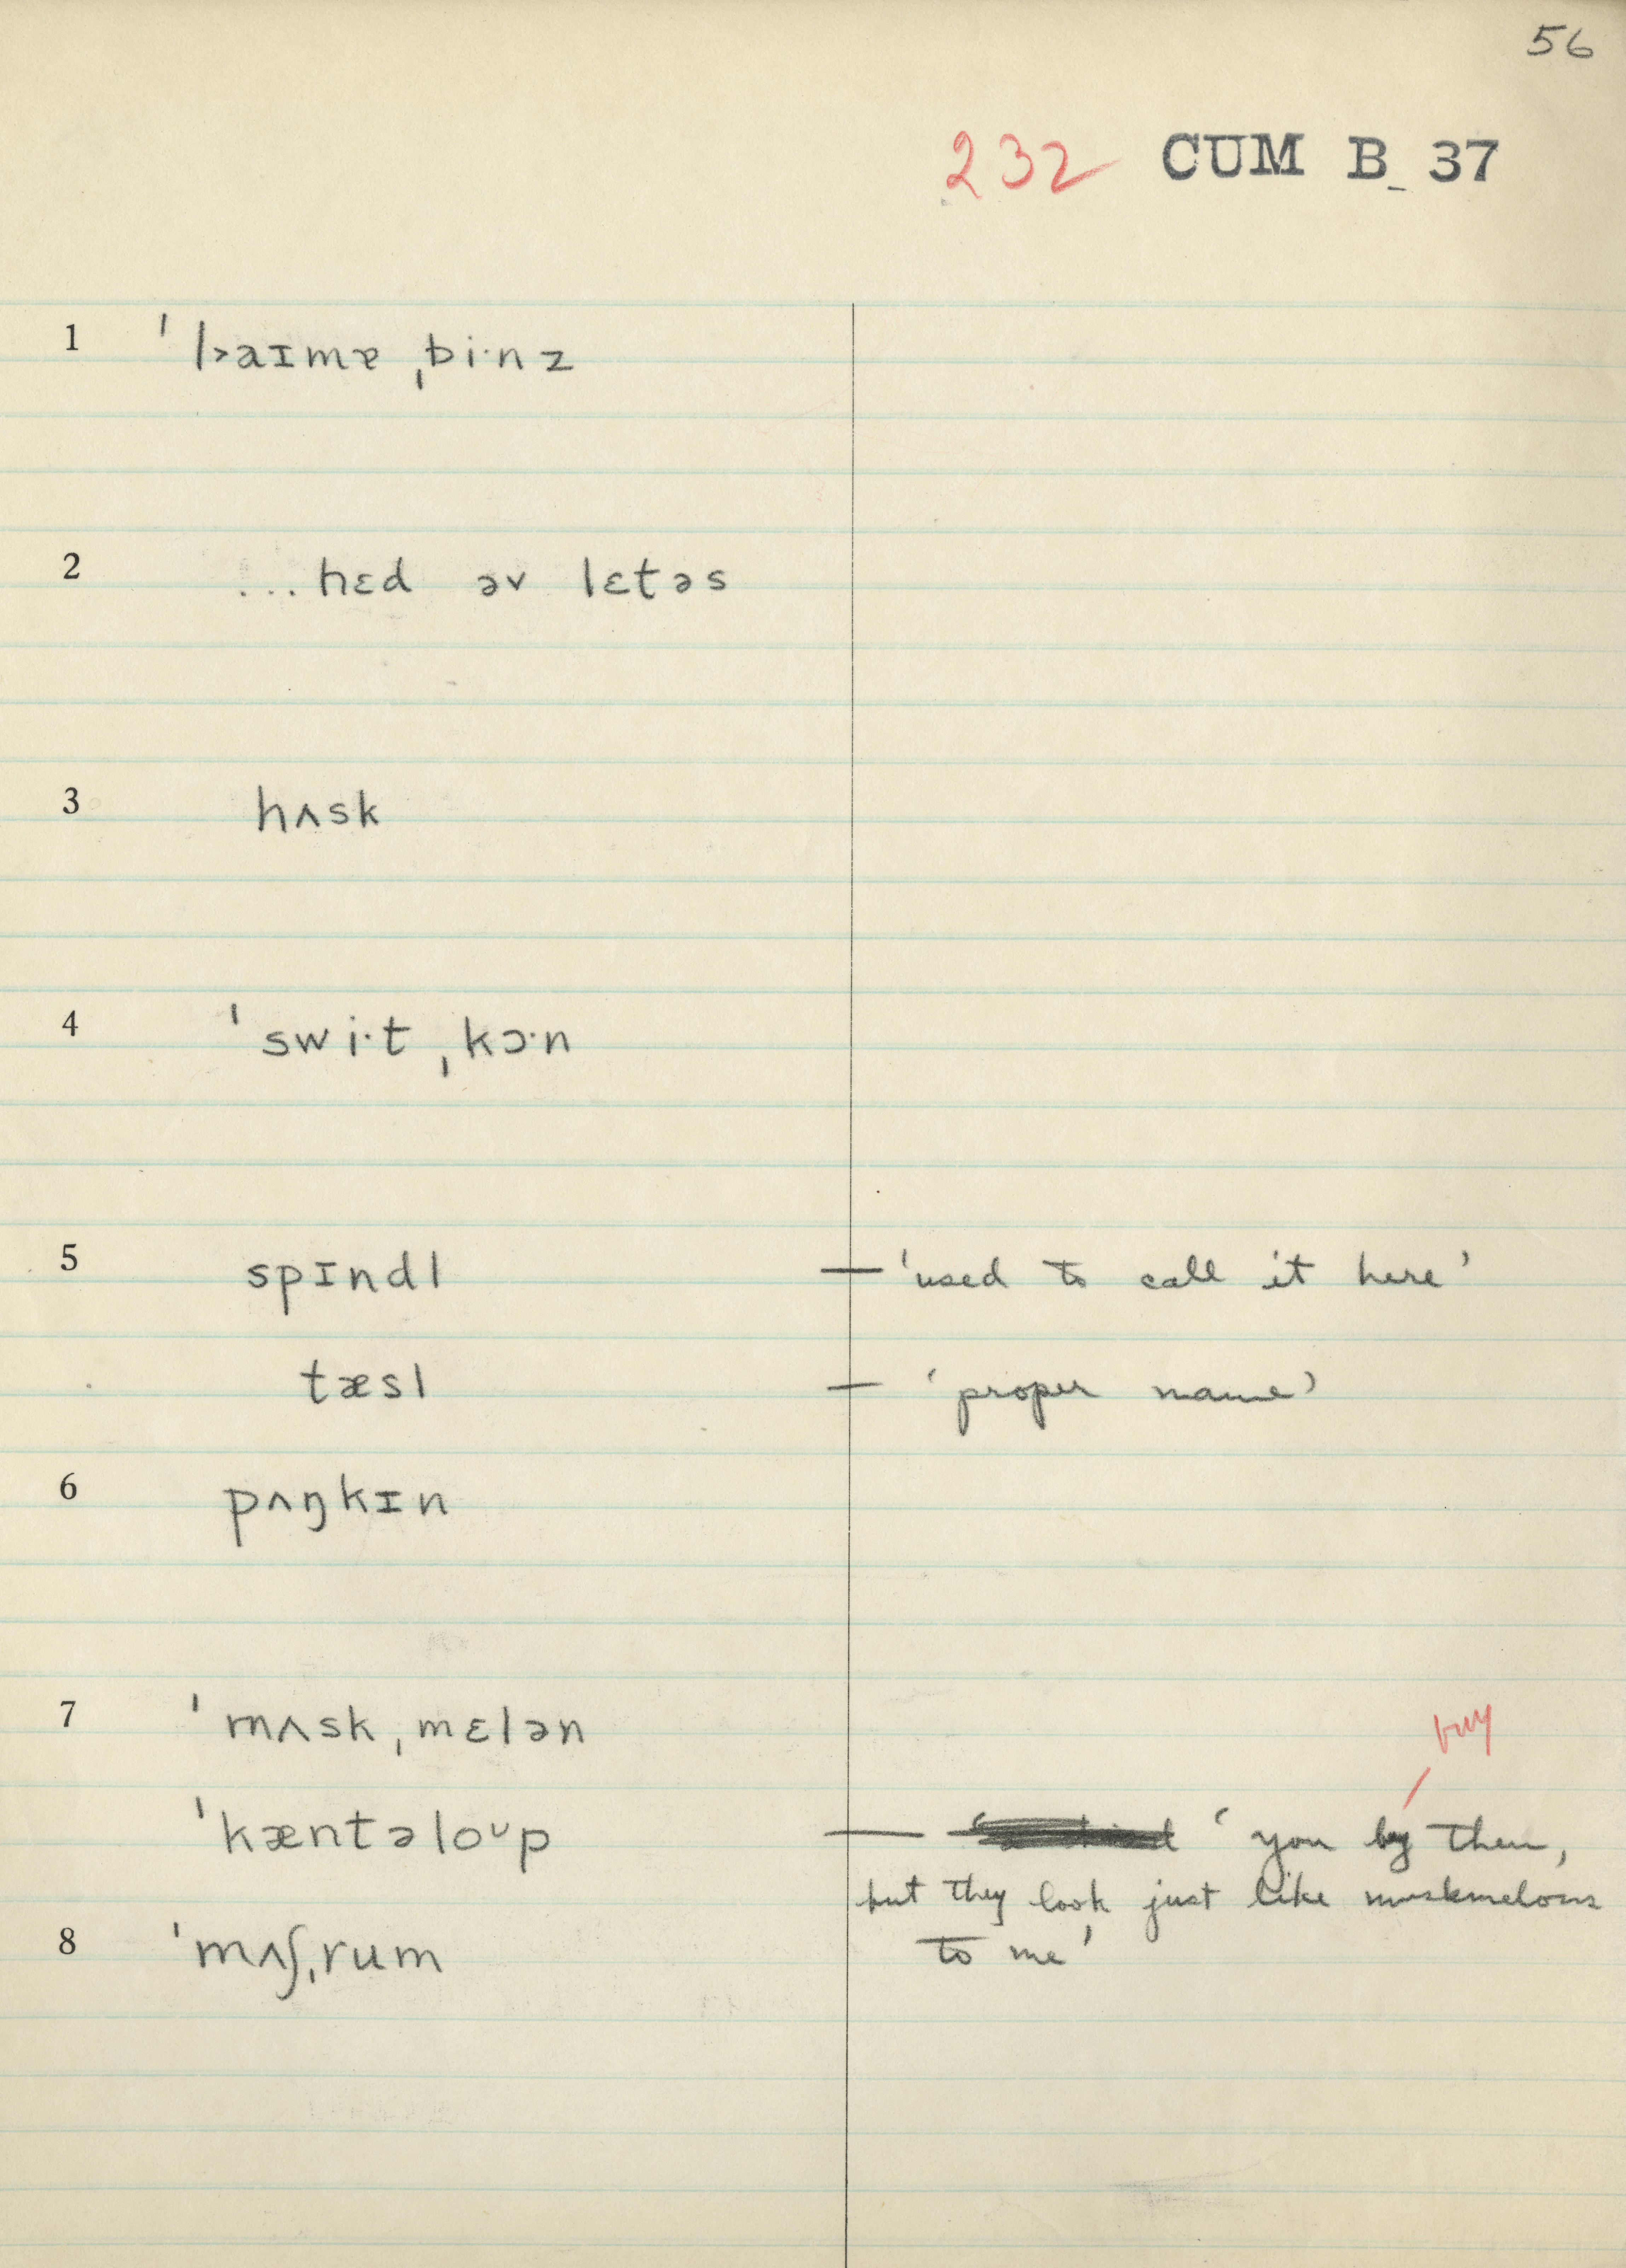 56
232 CUM B 37
1 ˈl˃aɪmɐ ˌbi·nz
2 ...hɛd əv lɛtəs
3 hʌsk
4 ˈswi·t ˌkɔ·n
5 spɪndl — 'used to call it here'
tæsl — 'proper name'
6 pʌŋkɪn
7 ˈmʌsk ˌmɛlən
buy
ˈkæntəloᵘp — 'you by them,
but they look just like muskmelons
8 ˈmʌʃˌrum to me'